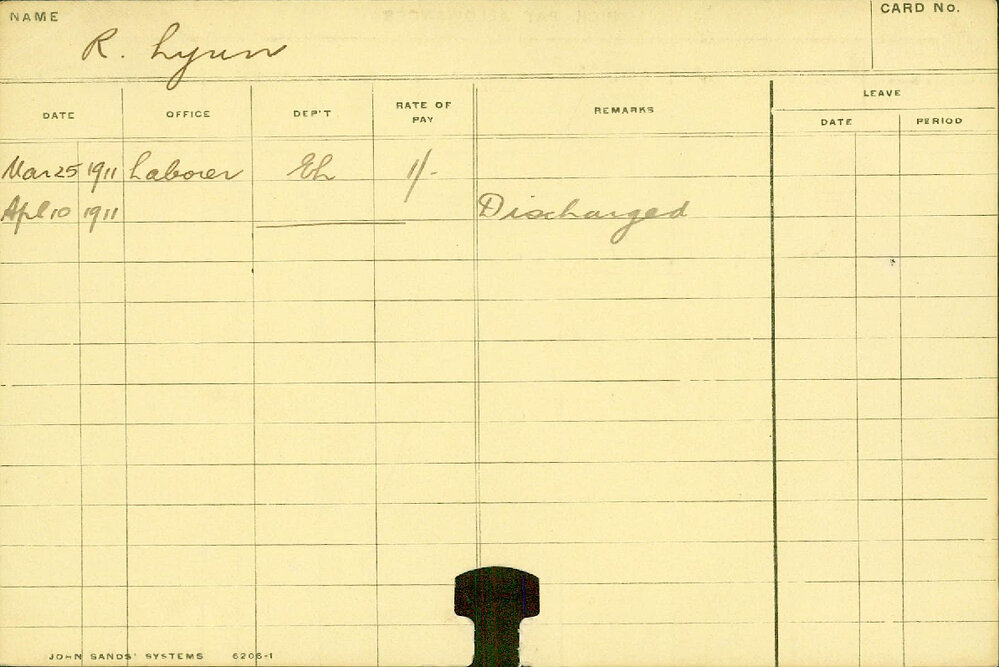 NAME
CARD No.
R. Lynn
DATE OFFICE DEP'T RATE OF PAY REMARKS LEAVE
DATE PERIOD
Mar 25 1911 Laborer Eh 1/-
Apl 10 1911 Discharged
JOHN SANDS' SYSTEMS 6206-1